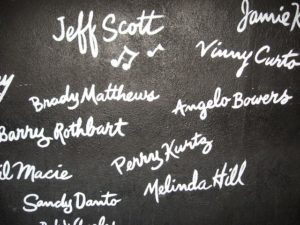 Jeff Scott
Jamie K
Vinny Curto
Brady Matthews
Angelo Bowers
Barry Rothbart
Perry Kurtz
Macie
Melinda Hill
Sandy Danto